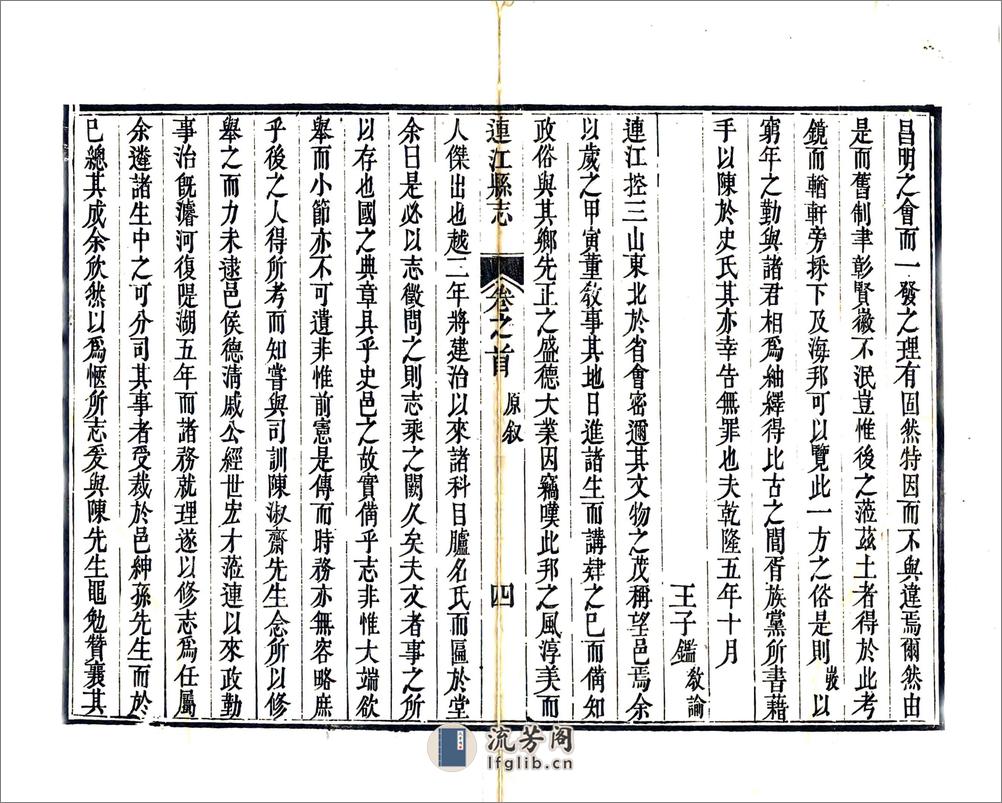 昌明之會而一發之理有固然特因而不與違焉爾然由
是而舊制聿彰賢徽不泯豈惟後之蒞茲土者得於此考
鏡而輶軒旁採下及海邦可以覽此一方之俗是則䇓以
窮年之勤與諸君相為紬繹得比古之閭胥族黨所書藉
手以陳於史氏其亦幸告無罪也夫乾隆五年十月
王子鑑教諭
連江控三山東北於省會密邇其文物之茂稱望邑焉余
以歲之甲寅董敎事其地日進諸生而講肄之已而備知
政俗與其鄉先正之盛德大業因竊嘆此邦之風淳美而
連江縣志
卷之首
原叙
四
人傑出也越二年將建治以來諸科目臚名氏而匾於堂
余曰是必以志徵問之則志乘之闕久矣夫文者事之所
以存也國之典章具乎史邑之故實備乎志非惟大端欲
舉而小節亦不可遺非惟前憲是傳而時務亦無容略庶
乎後之人得所考而知嘗與司訓陳淑齋先生念所以修
舉之而力未逮邑侯德清戚公經世宏才蒞連以來政勤
事治旣濬河復隄湖五年而諸務就理遂以修志爲任屬
余遴諸生中之可分司其事者受裁於邑紳孫先生而於
已總其成余欣然以爲愜所志爰與陳先生黽勉贊襄其
流芳阁
lfglib.cn